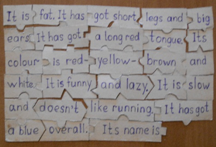 It is fat. It has got short legs and big
ears. It has got a long rod tongue. Its
colour is red-yellow-brown and
white. It is funny and lazy. It is slow
and doesn't like running. It has got
a blue overall. Its name is